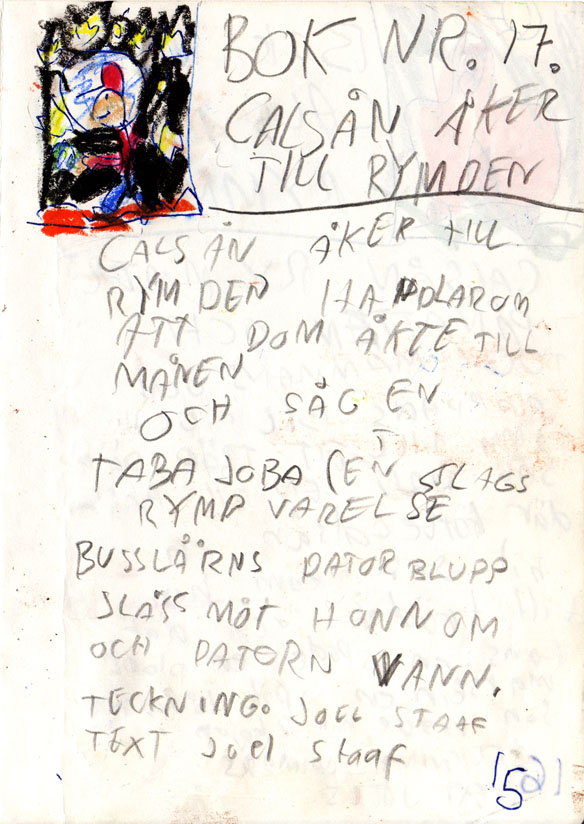 BOK NR. 17.
CALSÅN ÅKER
TILL RYMDEN
CALSÅN ÅKER TILL
RYMDEN HAPDLAROM
ATT DOM ÅKTE TILL
MÅNEN
OCH SÅG EN
TABA JOBA (EN SLAGS
RYMD VARELSE
BUSSLÅRNS DATOR BLUPP
SLÅSS MOT HONNOM
OCH DATORN VANN.
TECKNING. JOEL STAAF
TEXT Joel Staaf
15